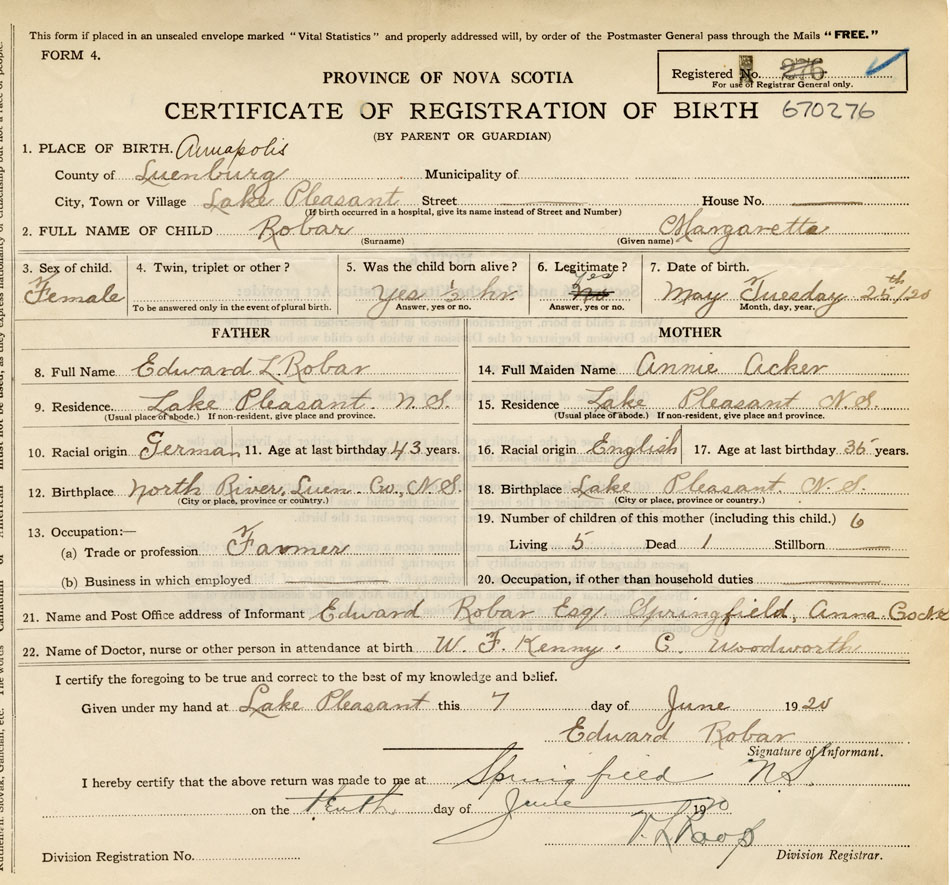 This form if placed in an unsealed envelope marked "Vital Statistics" and properly addressed will, by order of the Postmaster General pass through the Mails "FREE."
FORM 4.
Registered No. 276
For use of Registrar General only.
PROVINCE OF NOVA SCOTIA
CERTIFICATE OF REGISTRATION OF BIRTH 670276
(BY PARENT OR GUARDIAN)
1. PLACE OF BIRTH. Annapolis
County of Luenburg Municipality of
City, Town or Village Lake Pleasant Street House No.
(If birth occurred in a hospital, give its name instead of Street and Number)
2. FULL NAME OF CHILD Robar Margaretta
(Surname) (Given name)
3. Sex of child. 4. Twin, triplet or other? 5. Was the child born alive? 6. Legitimate? 7. Date of birth.
Female Yes ½ hr. Yes No May Tuesday 25th/20
To be answered only in the event of plural birth. Answer, yes or no. Answer, yes or no. Month, day, year.
FATHER MOTHER
8. Full Name Edward L. Robar 14. Full Maiden Name Annie Acker
9. Residence. Lake Pleasant. N.S. 15. Residence Lake Pleasant N.S.
(Usual place of abode.) If non-resident, give place and province. (Usual place of abode.) If non-resident, give place and province.
10. Racial origin German 11. Age at last birthday 43 years. 16. Racial origin English 17. Age at last birthday 35 years.
12. Birthplace North River, Luen. Co., N.S. 18. Birthplace Lake Pleasant. N.S.
(City or place, province or country.) (City or place, province or country.)
13. Occupation:— 19. Number of children of this mother (including this child.) 6
(a) Trade or profession Farmer Living 5 Dead 1 Stillborn
(b) Business in which employed 20. Occupation, if other than household duties
21. Name and Post Office address of Informant Edward Robar Esq. Springfield, Anna.
22. Name of Doctor, nurse or other person in attendance at birth W. F. Kenny. C. Woodworth
I certify the foregoing to be true and correct to the best of my knowledge and belief.
Given under my hand at Lake Pleasant this 7 day of June 1920
Edward Robar
Signature of Informant.
I hereby certify that the above return was made to me at Springfield NS
on the tenth day of June 1920
Division Registration No. Division Registrar.